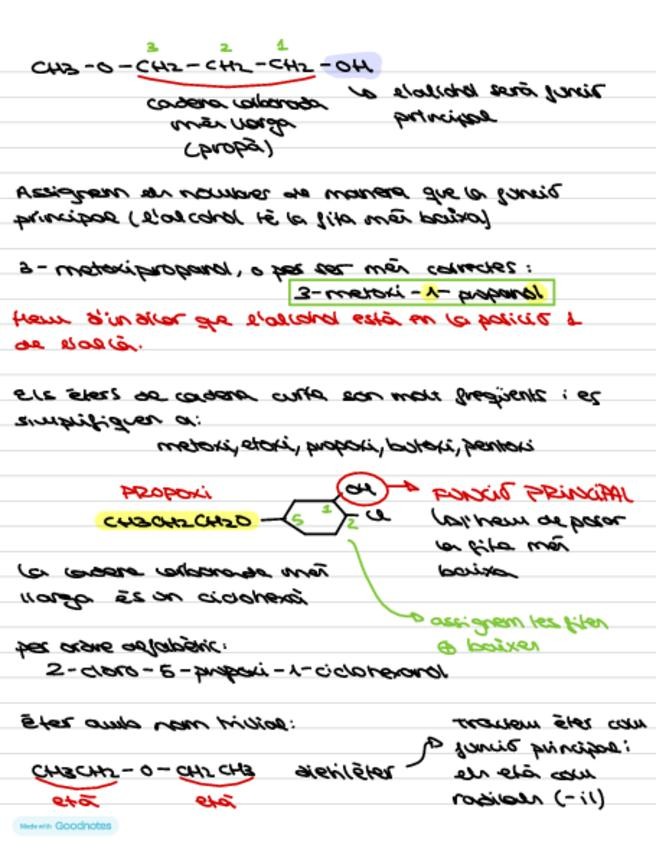 3 2 1
CH3 - O - CH2 - CH2 - CH2 - OH
cadena carbonada
més llarga
(propà)
↳ l'alcohol serà funció
principal
Assignem els nombres de manera que la funció
principal (l'alcohol té la fita més baixa)
3-metoxipropanol, o per ser més correctes:
3-metoxi-1-propanol
Hem d'indicar que l'alcohol està en la posició 1
de l'alcà.
Els èters de cadena curta son molt freqüents i es
simplifiquen a:
metoxi, etoxi, propoxi, butoxi, pentoxi
PROPOXI
CH3CH2CH2O
5 1 2
OH → FUNCIÓ PRINCIPAL
Cl
(li hem de posar
la fita més
baixa
La cadena carbonada més
llarga és un ciclohexà
assignem les fites
⊕ baixes
per ordre alfabètic:
2-cloro-5-propoxi-1-ciclohexanol
Èter amb nom trivial:
CH3CH2 - O - CH2CH3 dietilèter
età età
Tractem èter com
funció principal:
els età com
radicals (-il)
Made with Goodnotes